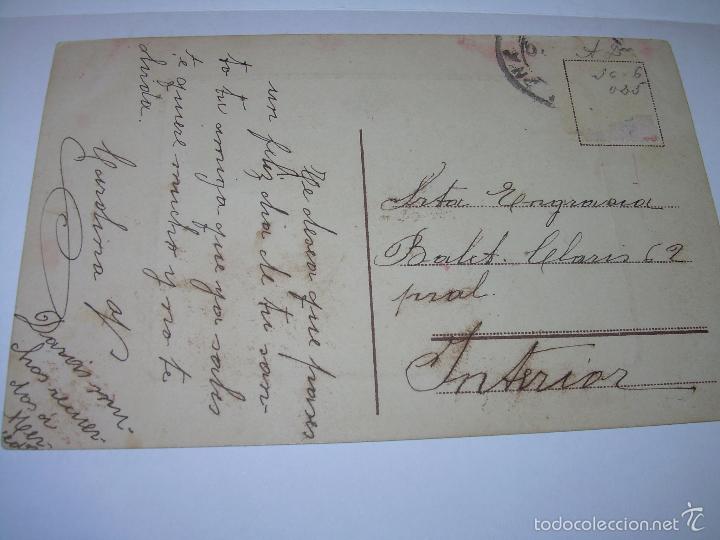 Te desea que pases
un feliz dia de tu san-
to tu amiga que ya sabes
te quiere mucho y no te
olvida.
Carolina
Darás mu-
chos recuer-
dos a
Mer-
Srta Engracia
Balet. Claris 62
pral.
Interior
36-6
035
todocoleccion.net